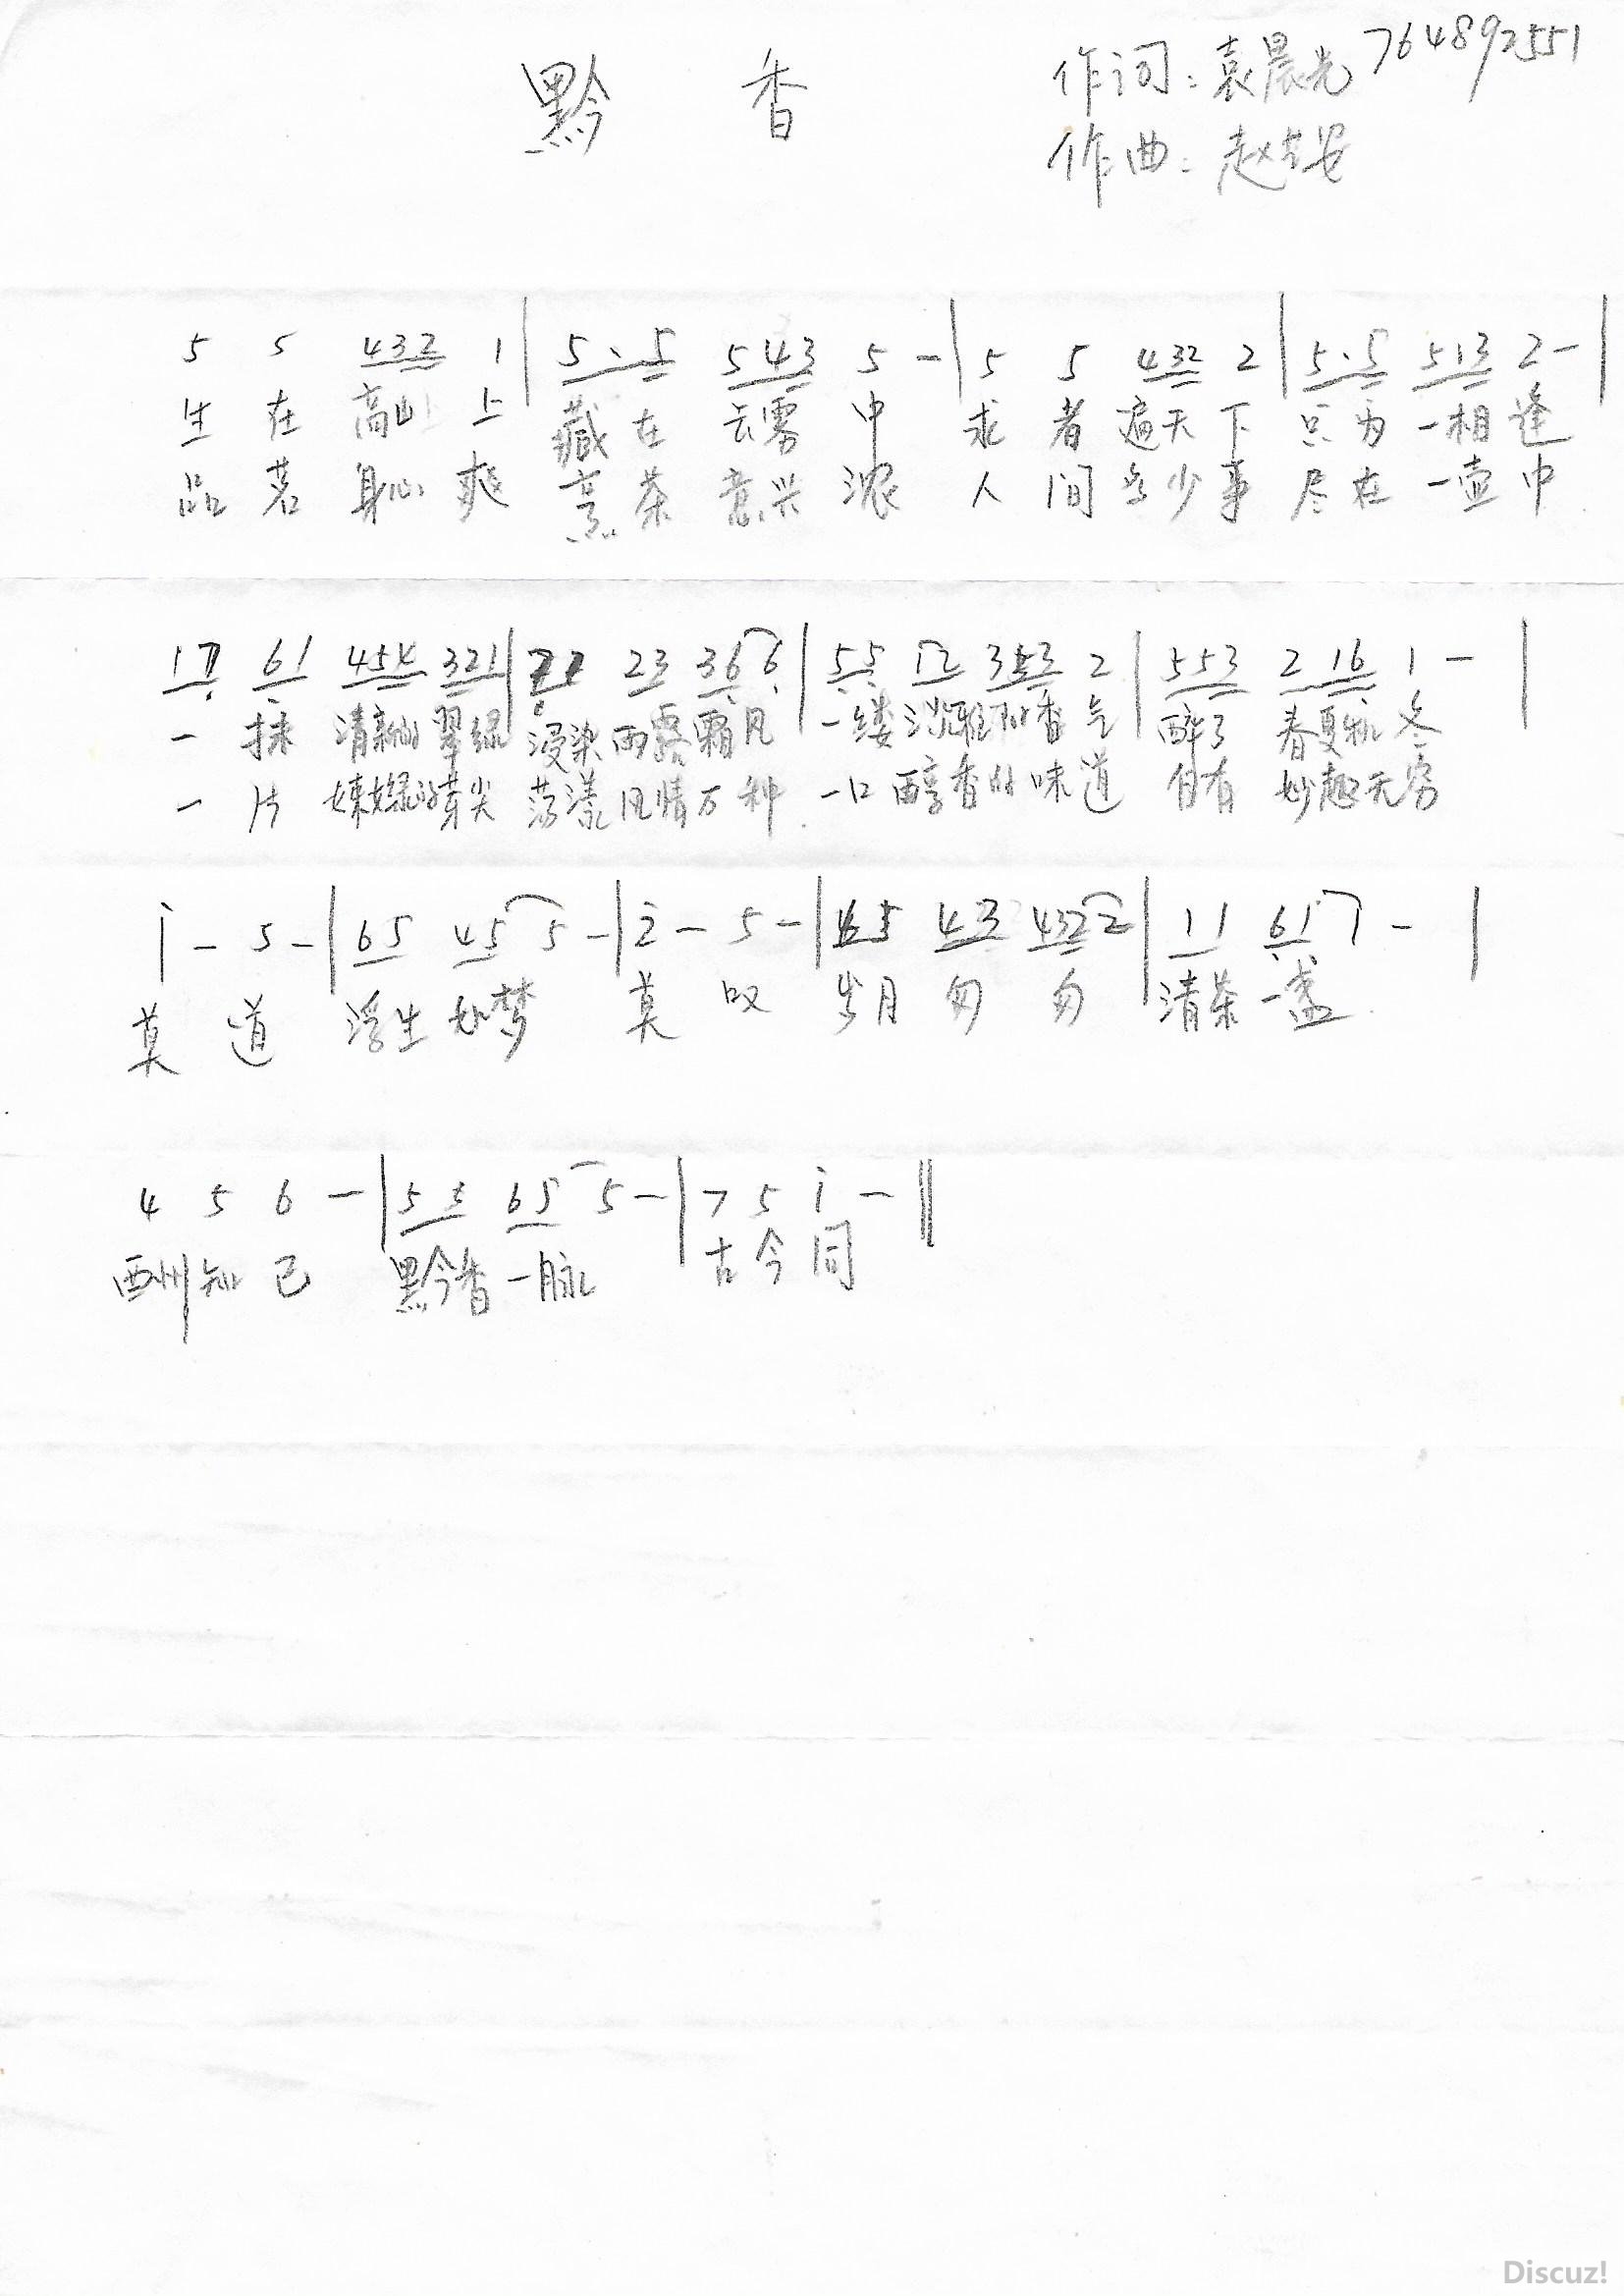 黔 香
作词：袁晨光 764892551
作曲：赵
5 5 432 1 | 5·5 543 5 - | 5 5 432 2 | 5·5 513 2 - |
生 在 高山 上 藏 在 云雾 中 求 者 遍天 下 只 为 一相 逢
品 茗 身心 爽 烹 茶 意兴 浓 人 间 多少 事 尽 在 一壶 中
17 61 454 321 | 77 23 36 6 | 55 12 353 2 | 553 2 16 1 - |
一 抹 清新的 翠绿 浸染 雨露 霜风 一缕 淡雅的香 气 醉了 春夏秋 冬
一 片 嫩绿的芽尖 荡漾 风情万 种 一口 醇香的 味 道 自有 妙趣无穷
i - 5 - | 65 45 5 - | 2 - 5 - | 65 43 432 2 | 11 61 1 - |
莫 道 浮生 如梦 莫 叹 岁月 匆 匆 清茶 一盏
4 5 6 - | 55 65 5 - | 7 5 i - ‖
酬 知 己 黔香 一脉 古 今 同
Discuz!